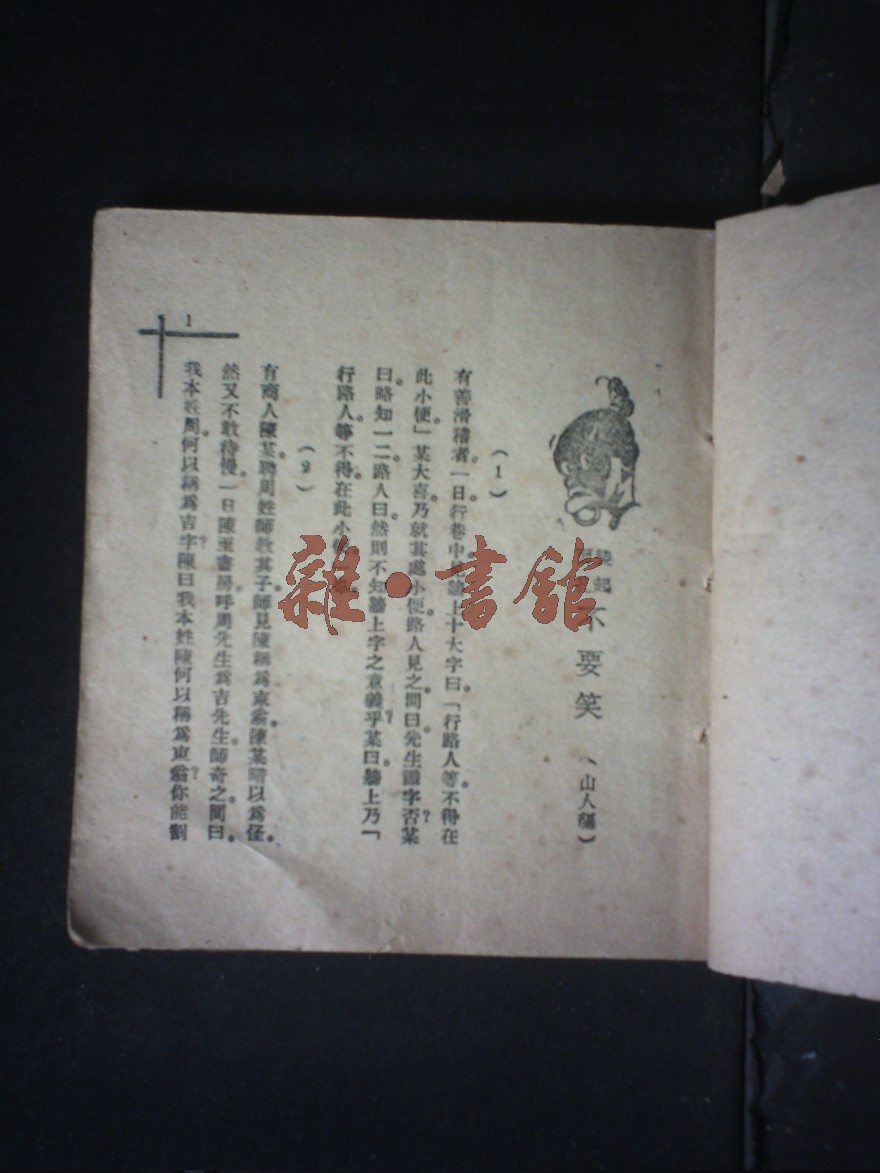 不要笑
(山人編)
(1)
有善滑稽者。一日行巷中。見牆上十大字曰。「行路人等不得在
此小便」某大喜。乃就其處小便。路人見之。問曰。先生識字否?某
曰。略知一二。路人曰。然則不知牆上字之意義乎?某曰。牆上乃「
行路人等。不得在此小
(2)
有商人陳某。聘周姓師教其子。師見陳稱爲東翁。陳某暗以爲怪。
然又不敢待慢。一日陳至書房。呼周先生爲吉先生。師奇之。問曰。
我本姓周。何以稱爲吉字?陳曰我本姓陳何以稱爲東翁?你能割
1
雜·書舘